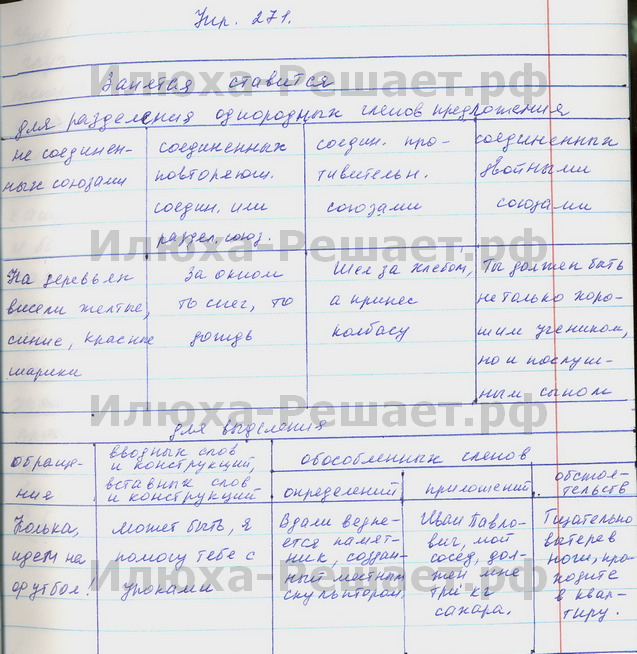 Упр. 271.
Илюха-Решает.рф
Запятая ставится
для разделения однородных членов предложения
не соединен-
ных союзами
соединенных
повторяющ.
соедин. или
раздел. союз.
соедин. про-
тивительн.
союзами
соединенных
двойными
союзами
Илюха-Решает.рф
На деревьях
висели желтые,
синие, красные
шарики
За окном
то снег, то
дождь
Шел за хлебом,
а принес
колбасу
Ты должен быть
не только хоро-
шим учеником,
но и послуш-
ным сыном
Илюха-Решает.рф
для выделения
обраще-
ния
вводных слов
и конструкций,
вставных слов
и конструкций
обособленных членов
определений
приложений
обстоя-
тельств
Колька,
идем на
футбол!
Может быть, я
помогу тебе с
уроками
Вдали видне-
ется памят-
ник, создан-
ный местным
скульптором.
Иван Павло-
вич, мой
сосед, дол-
жен мне
три кг
сахара.
Тщательно
вытерев
ноги, про-
ходите
в квар-
тиру.
Илюха-Решает.рф